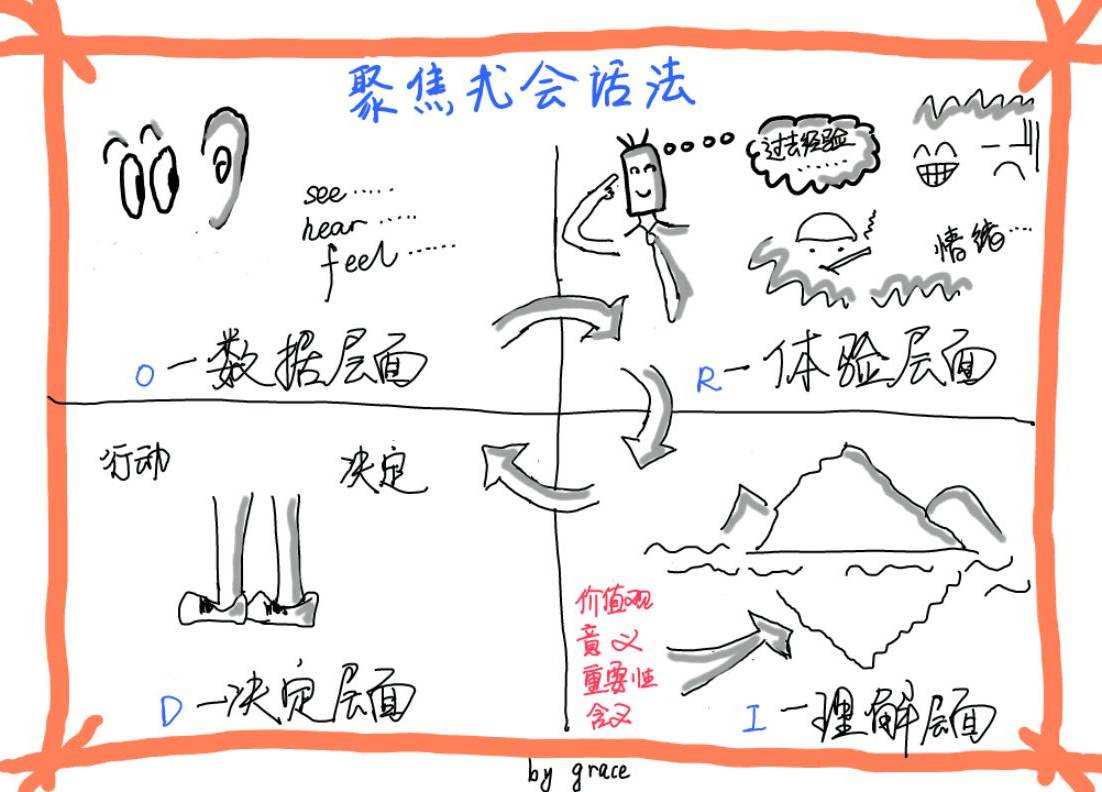 聚焦式会话法
see……
hear……
feel……
O—数据层面
过去经验
……
情绪…
R—体验层面
行动 决定
D—决定层面
价值观
意义
重要性
含义
I—理解层面
by grace